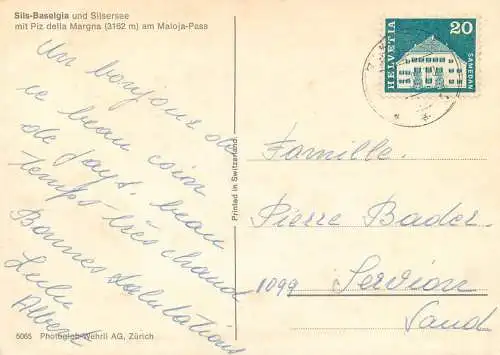 Sils-Baselgia und Silsersee
mit Piz della Margna (3162 m) am Maloja-Pass
Un bonjour de
ce beau coin
de pays, beau
temps très chaud
Bonnes salutations
Lulu
Albert
5065 Photoglob-Wehrli AG, Zürich
Printed in Switzerland
HELVETIA
20
SAMEDAN
Famille
Pierre Bader
1099 Servion
Vaud